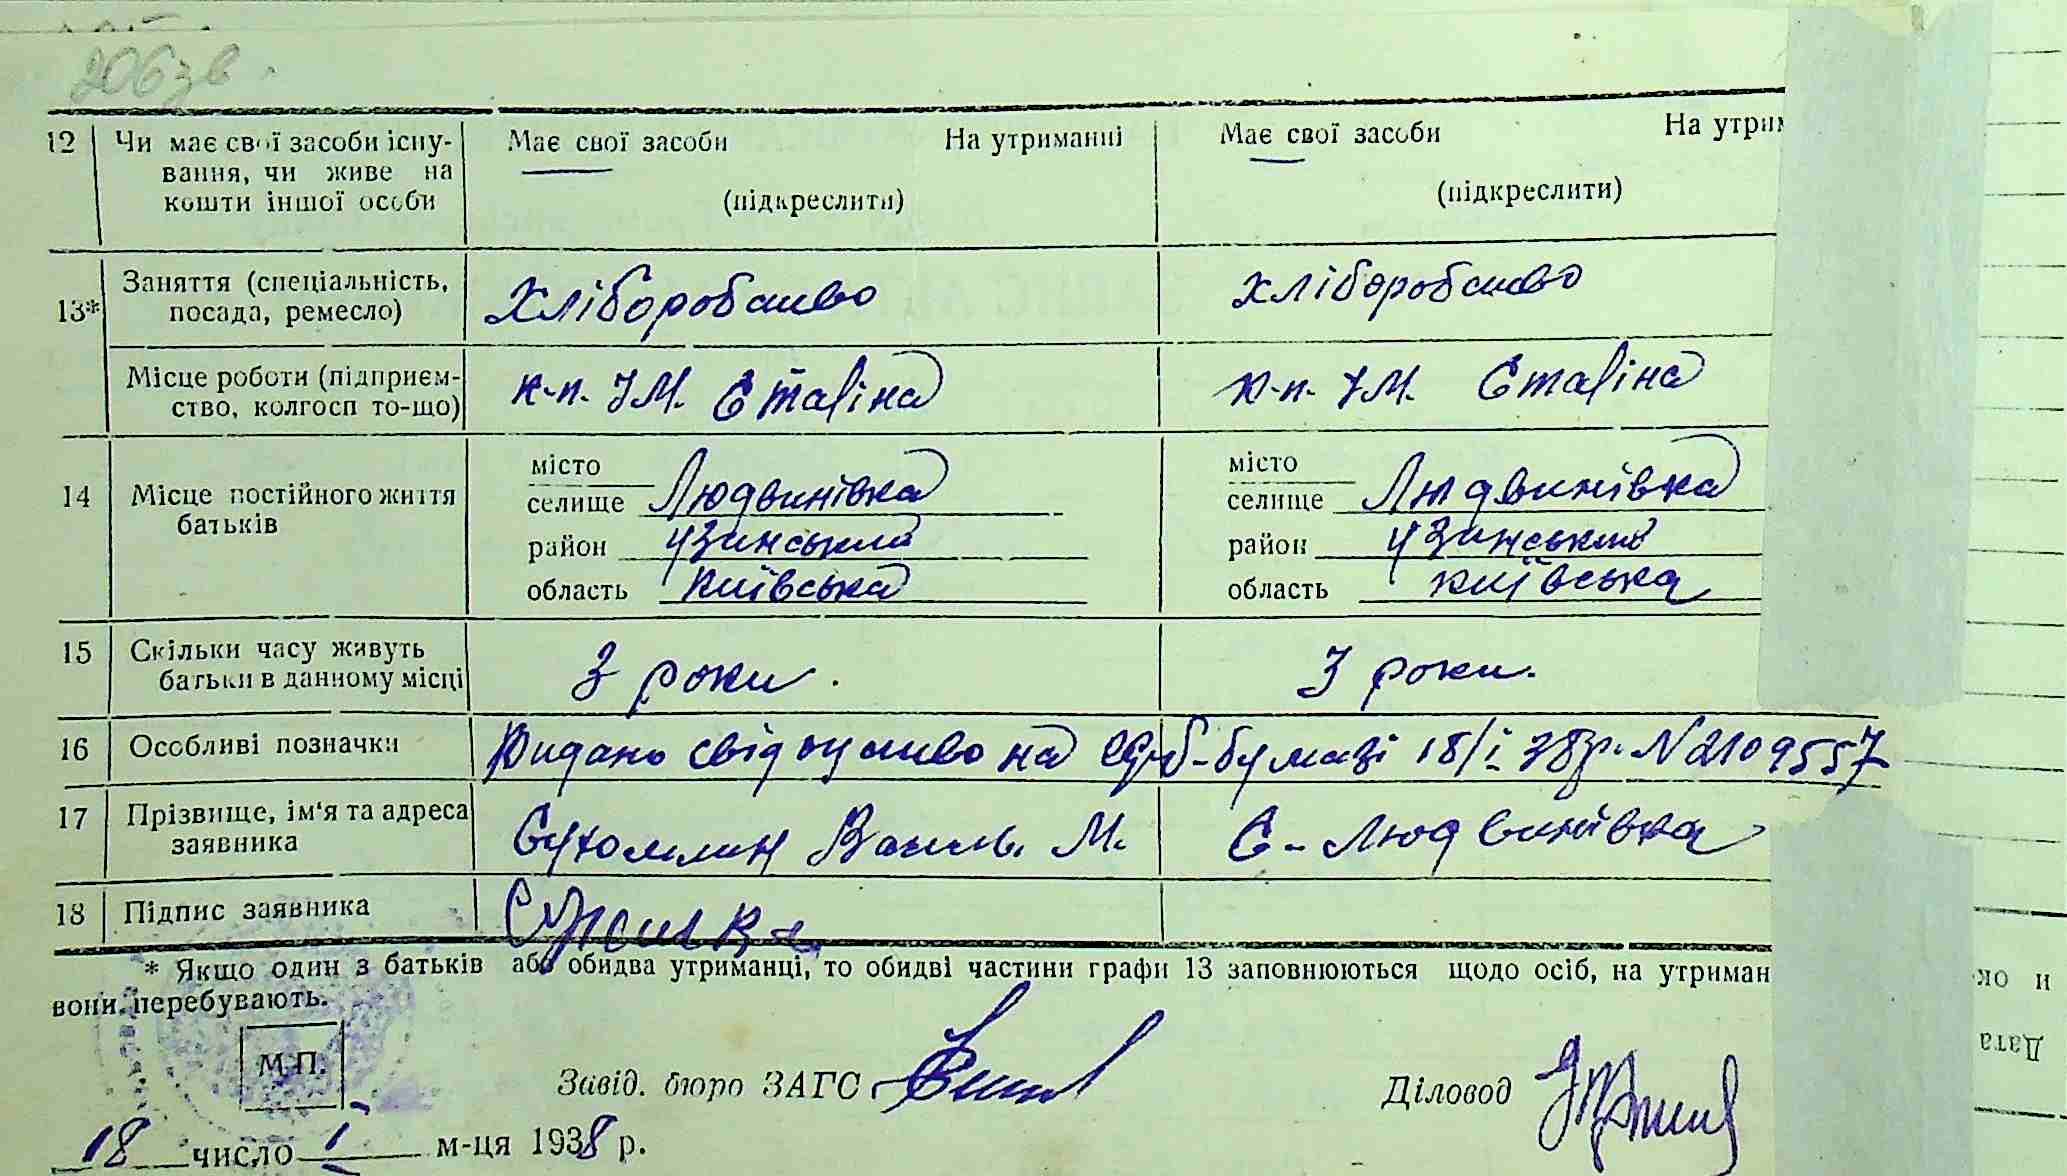 206 зв
12 Чи має свої засоби існу- Має свої засоби На утриманні Має свої засоби На утрим
вання, чи живе на
кошти іншої особи (підкреслити) (підкреслити)
13* Заняття (спеціальність, Хліборобство Хліборобство
посада, ремесло)
Місце роботи (підприєм- к-п. ім. Сталіна к-п. ім. Сталіна
ство, колгосп то-що)
14 Місце постійного життя батьків
місто місто
селище Людвинівка селище Людвинівка
район Узинський район Узинський
область Київська область Київська
15 Скільки часу живуть 3 роки. 3 роки.
батьки в данному місці
16 Особливі позначки Видано свідоцтво на бумазі 18/I 38р. № 2109557
17 Прізвище, ім'я та адреса Сухомлин Василь М. С. Людвинівка
заявника
18 Підпис заявника
* Якщо один з батьків або обидва утриманці, то обидві частини графи 13 заповнюються щодо осіб, на утриман
вони перебувають.
М.П.
Завід. бюро ЗАГС Діловод
18 число 1 м-ця 1938 р.
Дата